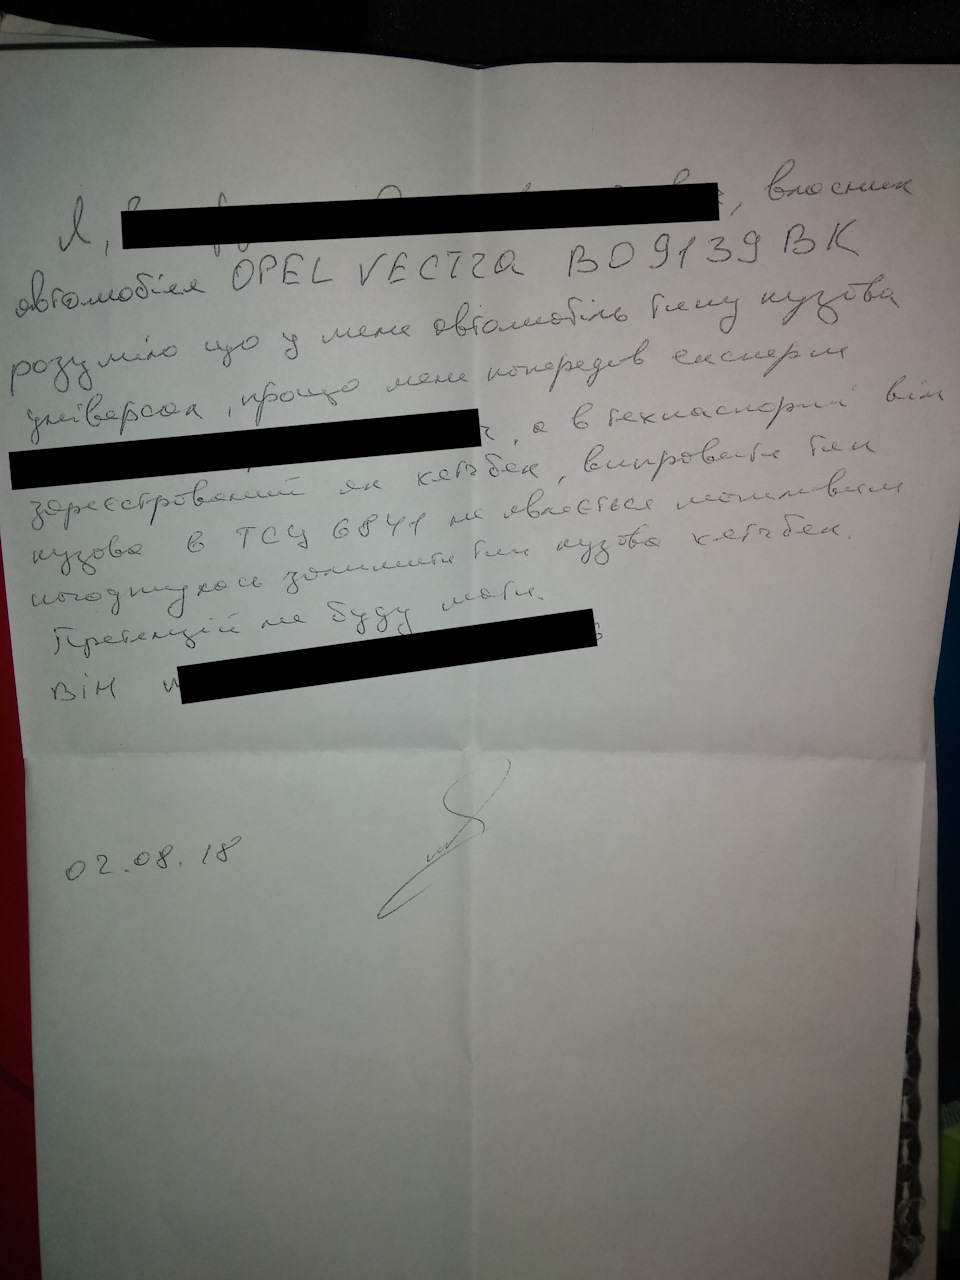 Я, , власник
автомобіля OPEL VECTRA ВО9139ВК
розумію що у мене автомобіль типу кузова
універсал, прощо мене попередив експерт
, а в техпаспорті він
зареєстрований як хетчбек, виправити тип
кузова в ТСЦ 6841 не являється можливим
погоджуюсь залишити тип кузова хетчбек.
Претензій не буду мати.
він
02.08.18